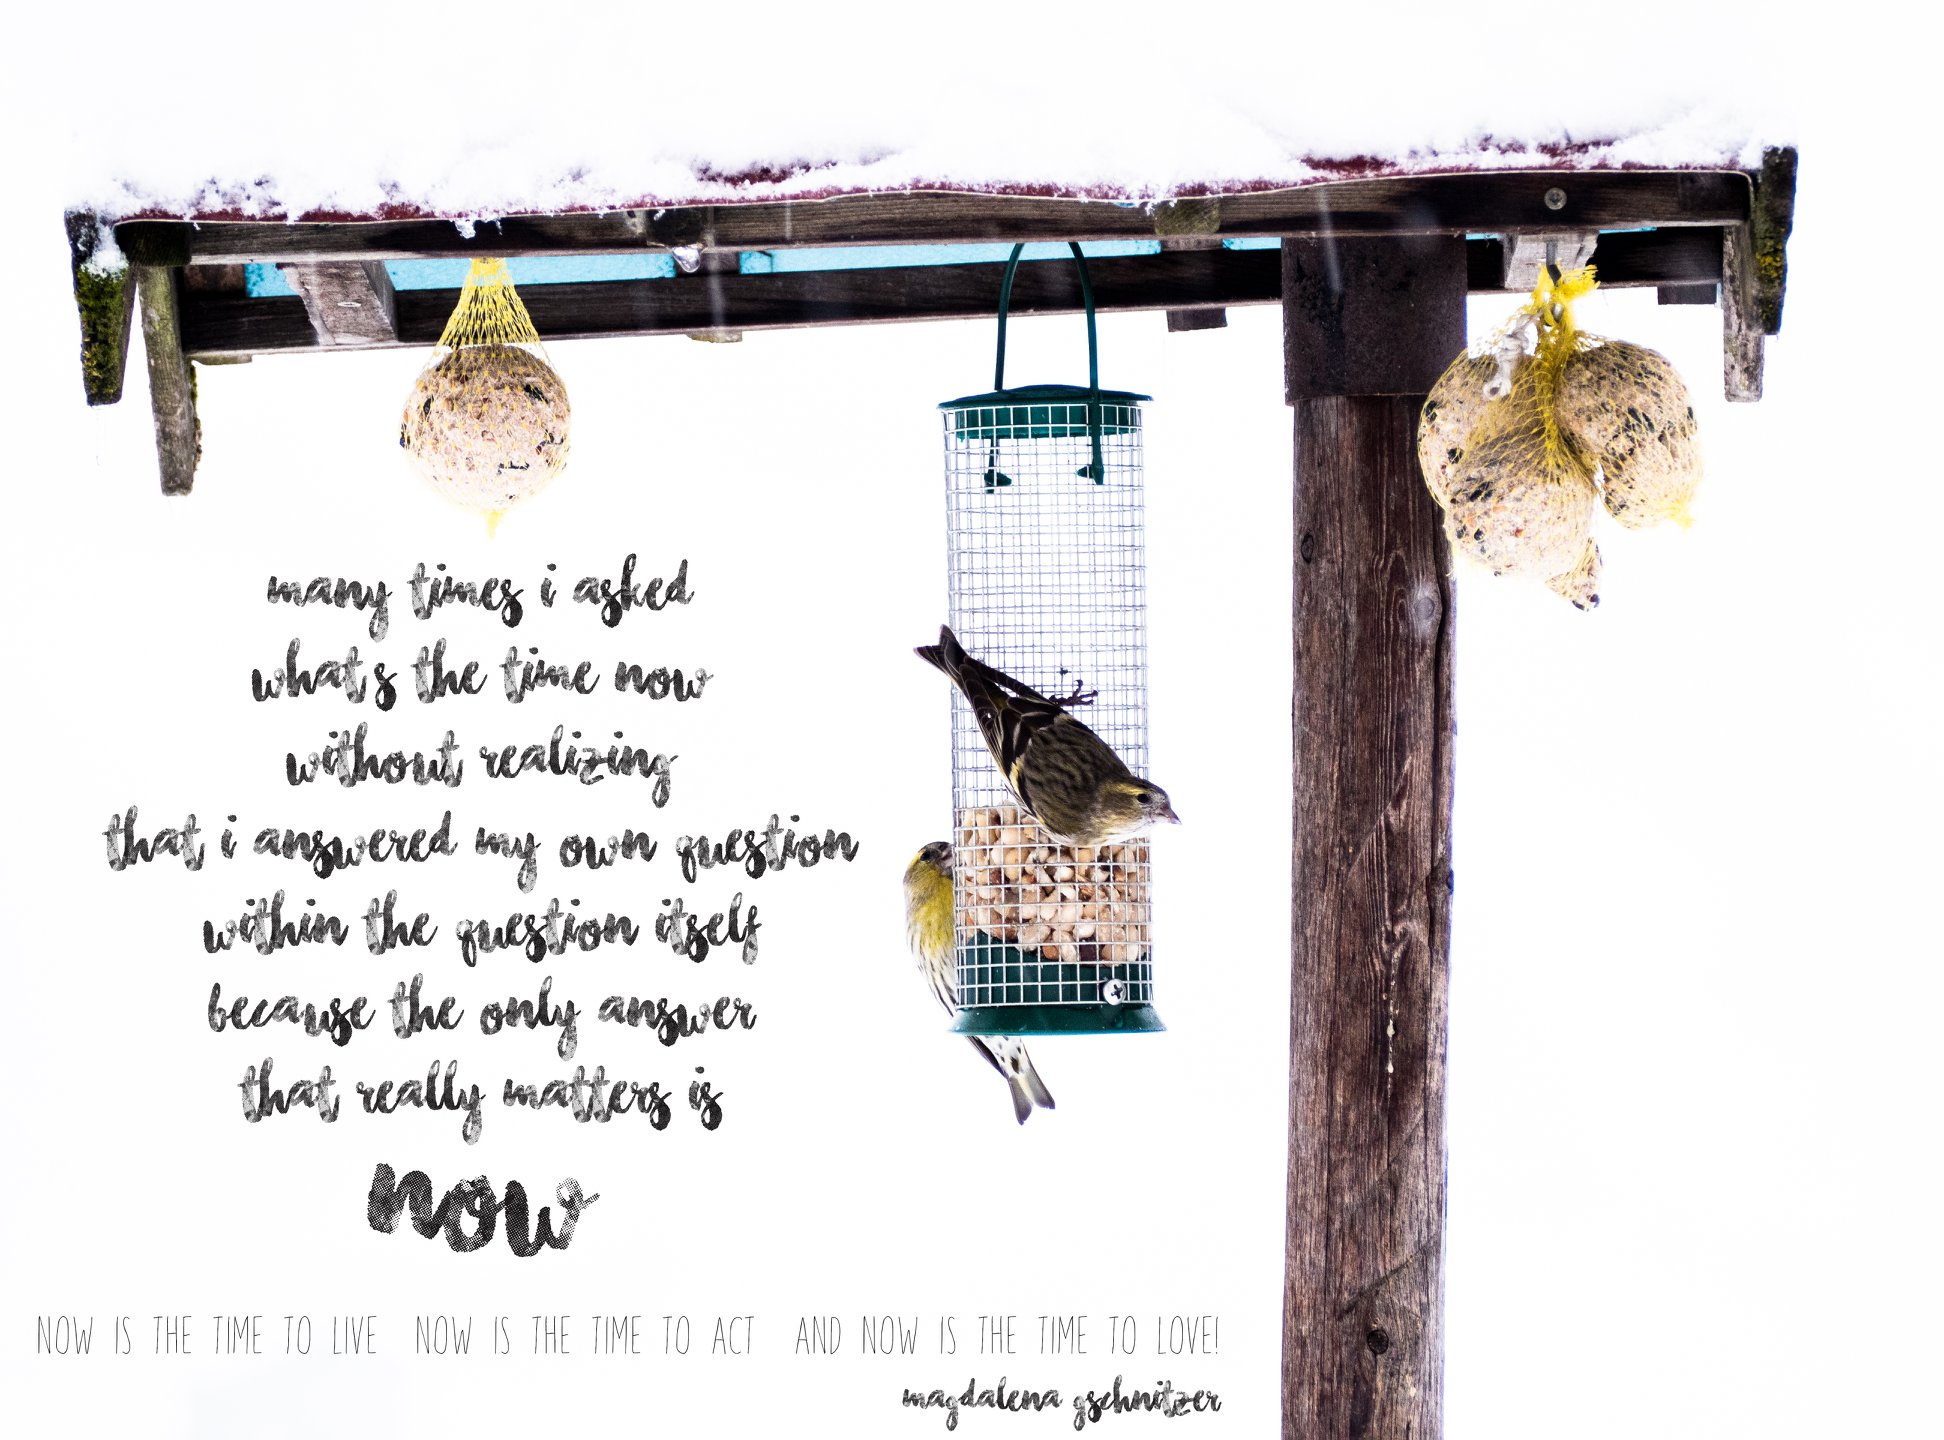 many times i asked
what's the time now
without realizing
that i answered my own question
within the question itself
because the only answer
that really matters is
now
NOW IS THE TIME TO LIVE NOW IS THE TIME TO ACT AND NOW IS THE TIME TO LOVE!
magdalena gschnitzer